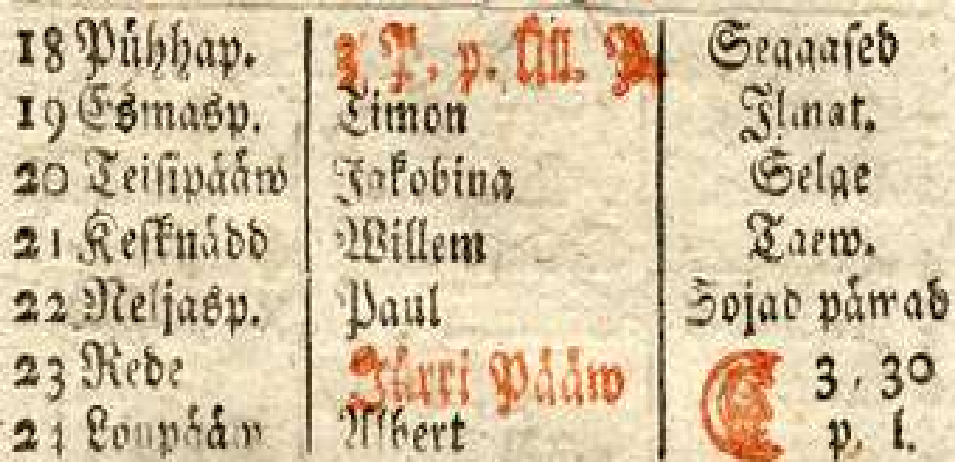 18 Pühhap. 3. P. p. Üll. P. Seggased
19 Esmasp. Timon Ilmat.
20 Teisipääw Jakobina Selge
21 Kesknädd Willem Taew.
22 Neljasp. Paul Sojad päwad
23 Rede Jürri Pääw 3. 30
24 Loupääw Albert p. l.